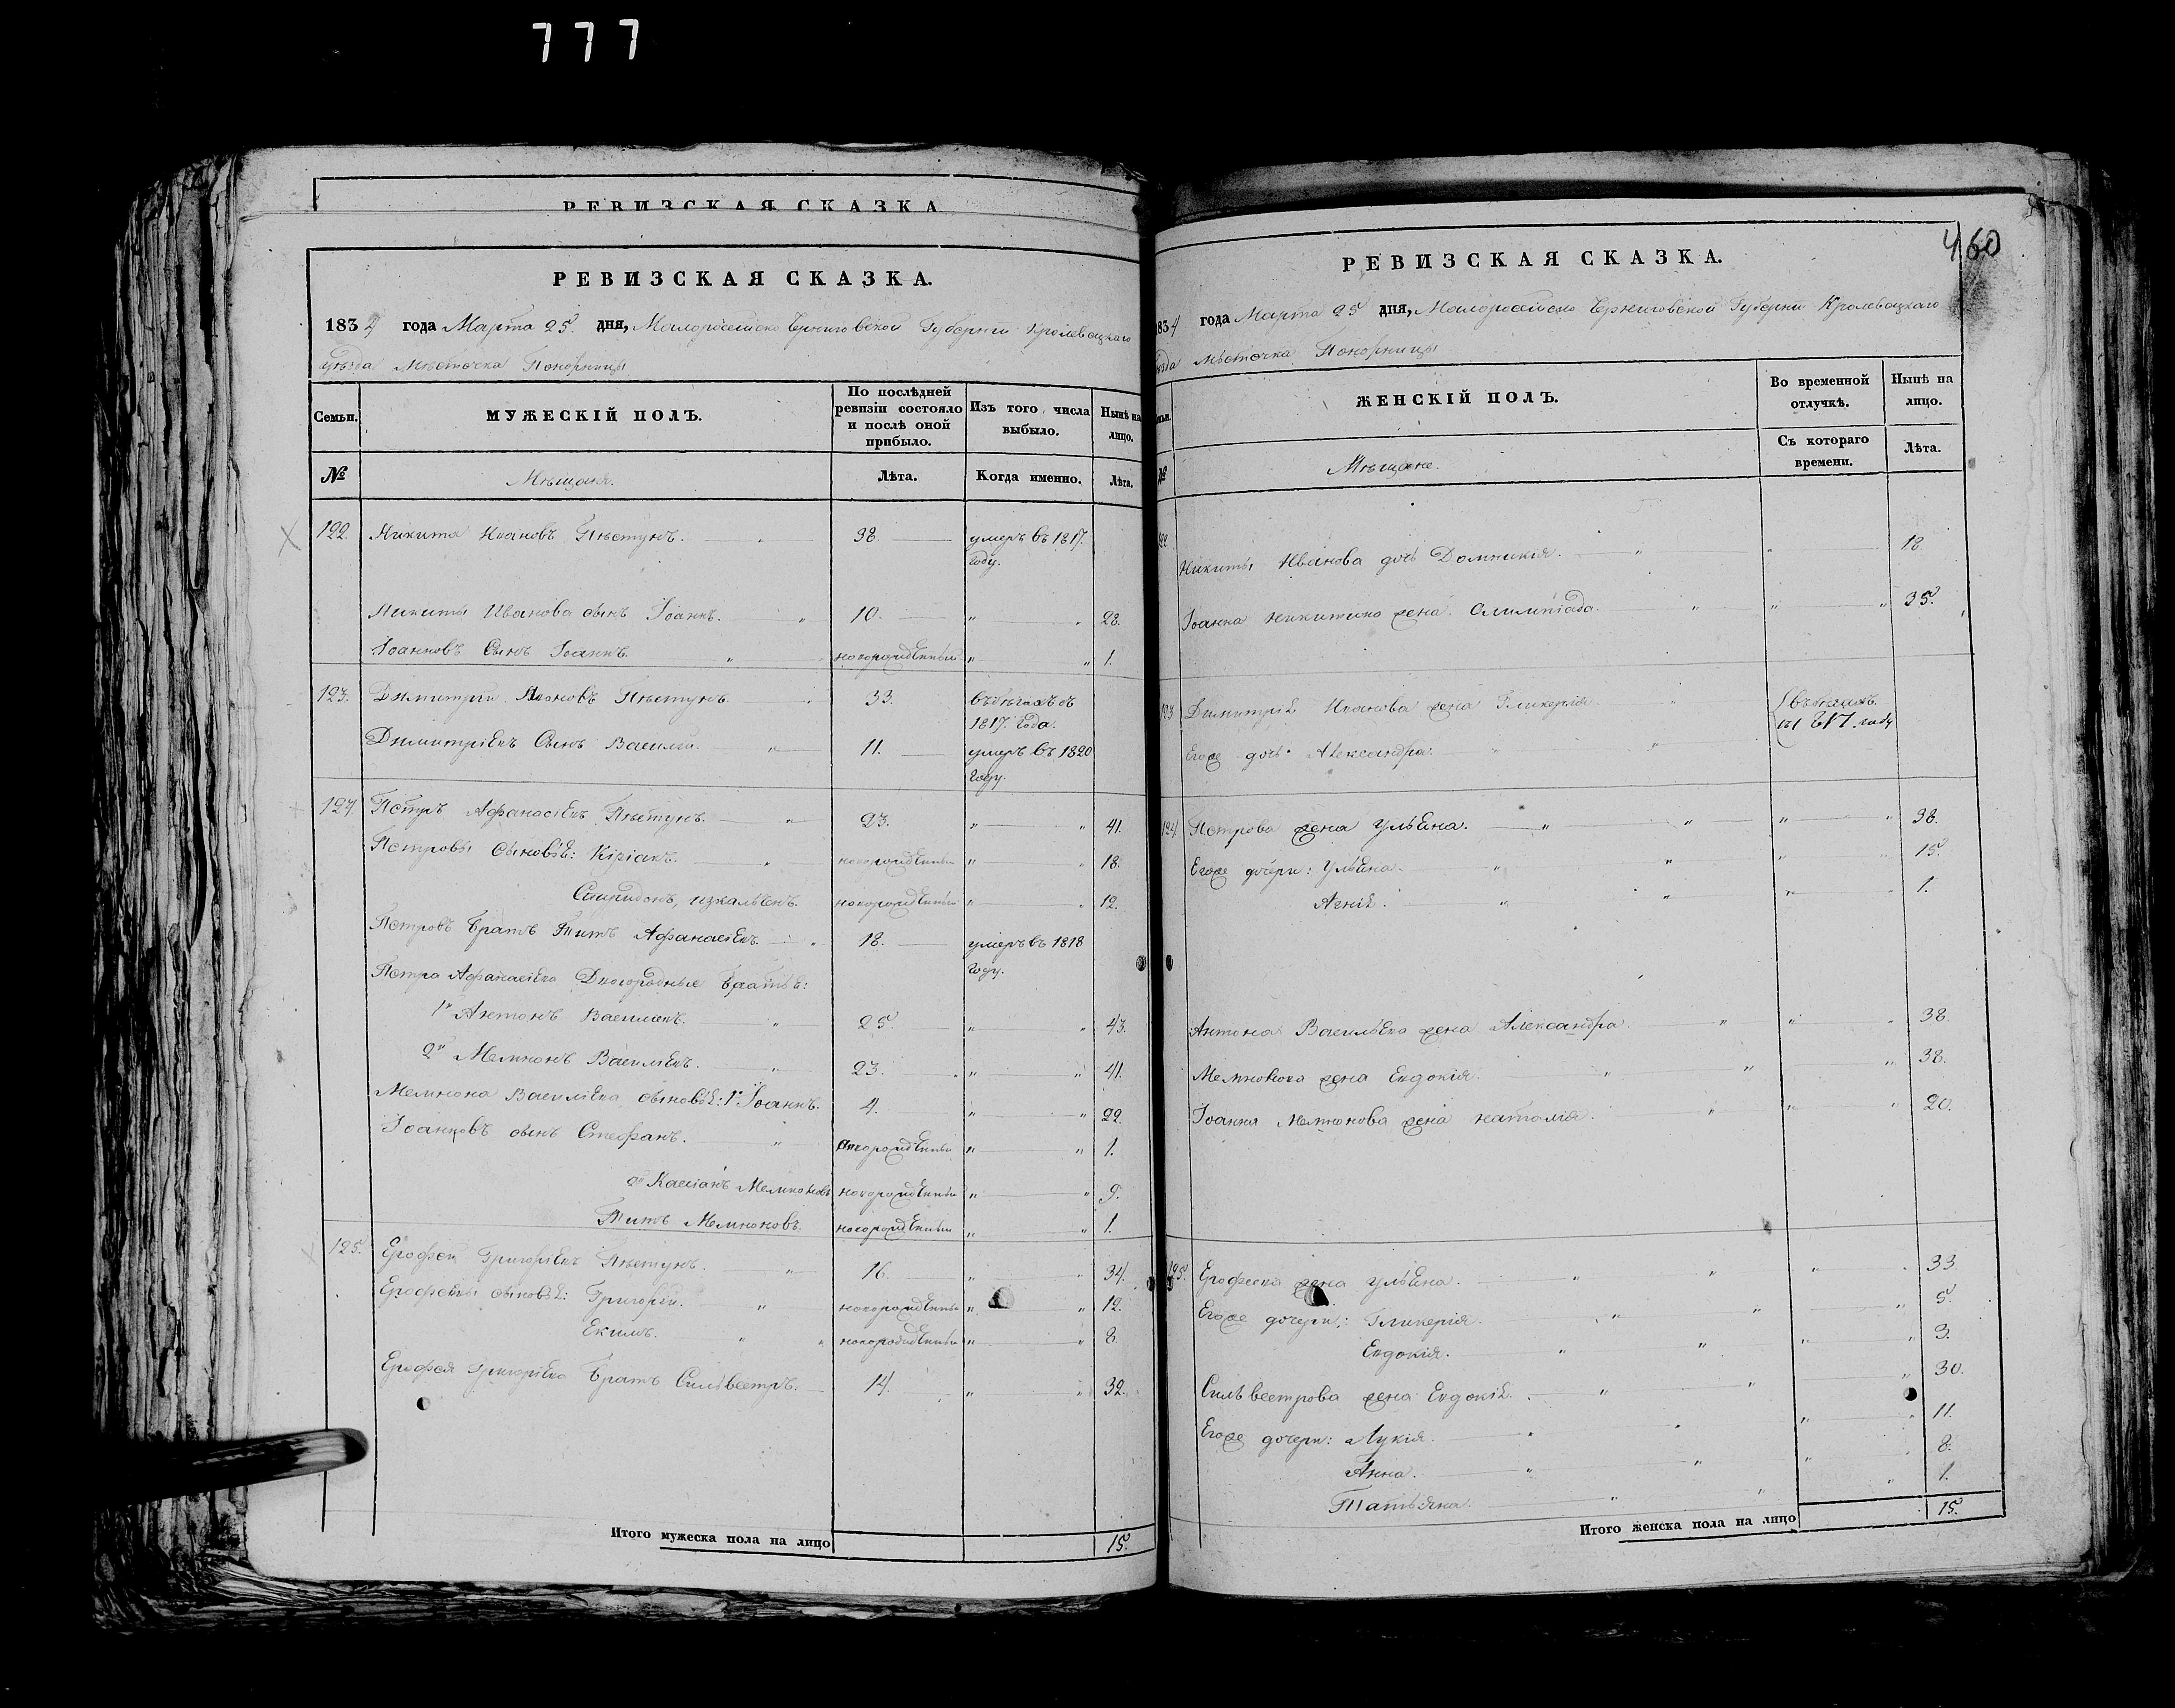 777
РЕВИЗСКАЯ СКАЗКА
РЕВИЗСКАЯ СКАЗКА.
1834 года Марта 25 дня, Малоросейско Черниговской Губернии Кролевецкаго
уѣзда мѣсточка Понорницы
Семьи.
МУЖЕСКІЙ ПОЛЪ.
По послѣдней ревизіи состояло и послѣ оной прибыло.
Изъ того числа выбыло.
Нынѣ на лицо.
№
Мѣщаня.
Лѣта.
Когда именно.
Лѣта.
122. Никита Ивановъ Пѣстунъ. 38. умеръ въ 1817. году.
Никиты Иванова сынъ Іоаннъ. 10. 28.
Іоанновъ Сынъ Іоаннъ. новорожденный 1.
123. Димитрій Ивановъ Пѣстунъ 33. въ бѣгахъ съ 1817. года.
Димитріевъ Сынъ Василій. 11. умеръ въ 1820 году.
124 Петръ Афанасіевъ Пѣстунъ. 23. 41.
Петровы сыновьѣ: Киріакъ. новорожденный 18.
Спиридонъ, новорожденный 12.
Петровъ братъ Титъ Афанасіевъ. 18. умеръ въ 1818 году.
Петра Афанасіева Двоюродные братьѣ:
1й Антонъ Васильевъ. 25. 43.
2й Мемнонъ Васильевъ. 23. 41.
Мемнона Васильева сыновьѣ: 1й Іоаннъ. 4. 22.
Іоанновъ сынъ Стефанъ. новорожденный 1.
2й Касіанъ Мемноновъ новорожденный 9.
Титъ Мемноновъ. новорожденный 1.
125. Ерофей Григоріевъ Пѣстунъ. 16. 34.
Ерофеевы сыновьѣ: Григорій. новорожденный 12.
Екимъ. новорожденный 8.
Ерофея Григоріева братъ Сильвестръ. 14. 32.
Итого мужеска пола на лицо 15.
460
РЕВИЗСКАЯ СКАЗКА.
834 года Марта 25 дня, Малоросейско Черниговской Губерніи Кролевецкаго
мѣсточка Понорницы
ЖЕНСКІЙ ПОЛЪ.
Во временной отлучкѣ.
Нынѣ на лицо.
№
Мѣщане.
Съ котораго времени.
Лѣта.
Никиты Иванова дочь Домникія. 18
Іоанна Никитина жена Олимпіада. 35.
123 Димитрія Иванова жена Гликерія въ бѣгахъ. 1817. году
Егоже дочь Александра.
124 Петрова жена Ульяна. 38.
Егоже дочери: Ульяна. 15.
Агнія. 1.
Антона Васильева жена Александра 38.
Мемнонова жена Евдокія. 38.
Іоанна Мемнонова жена Наталія. 20.
125. Ерофеева жена Ульяна. 33
Егоже дочери: Гликерія. 5.
Евдокія. 3.
Сильвестрова жена Евдокія. 30.
Егоже дочери: Лукія. 11.
Анна. 8.
Татьяна. 1.
Итого женска пола на лицо 15.